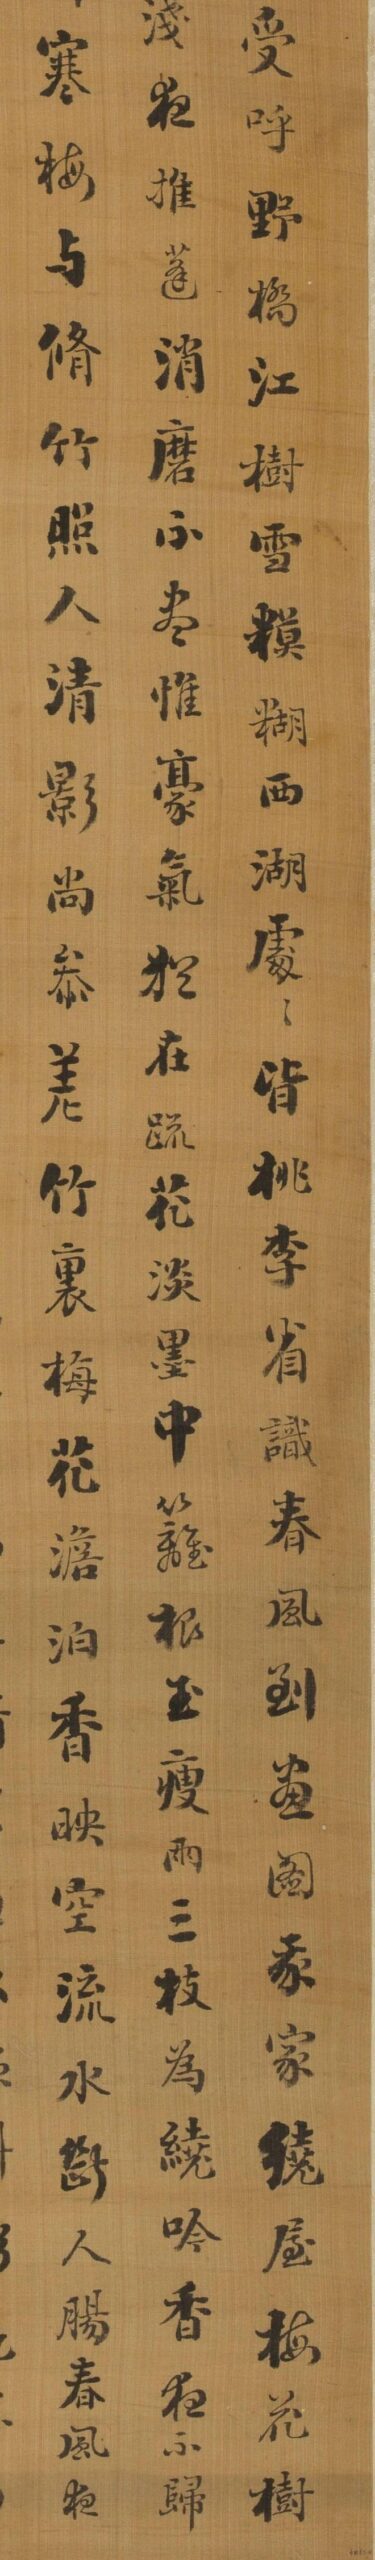 受呼野橋江樹雪糢糊西湖處〻皆桃李省識春風到畫圖我家繞屋梅花樹
淺夜推蓬消磨不盡惟豪氣猶在疏花淡墨中籬根玉瘦兩三枝為繞吟香夜不歸
寒梅与脩竹照人清影尚參差竹裏梅花澹泊香映空流水斷人腸春風夜